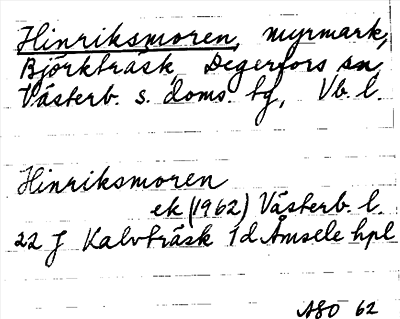 Hinriksmoren, myrmark,
Björkträsk Degerfors sn
Västerb. s. doms. tg, Vb. l.
Hinriksmoren
ek (1962) Västerb. l.
22 J Kalvträsk 1d Åmsele hpl
ASO 62